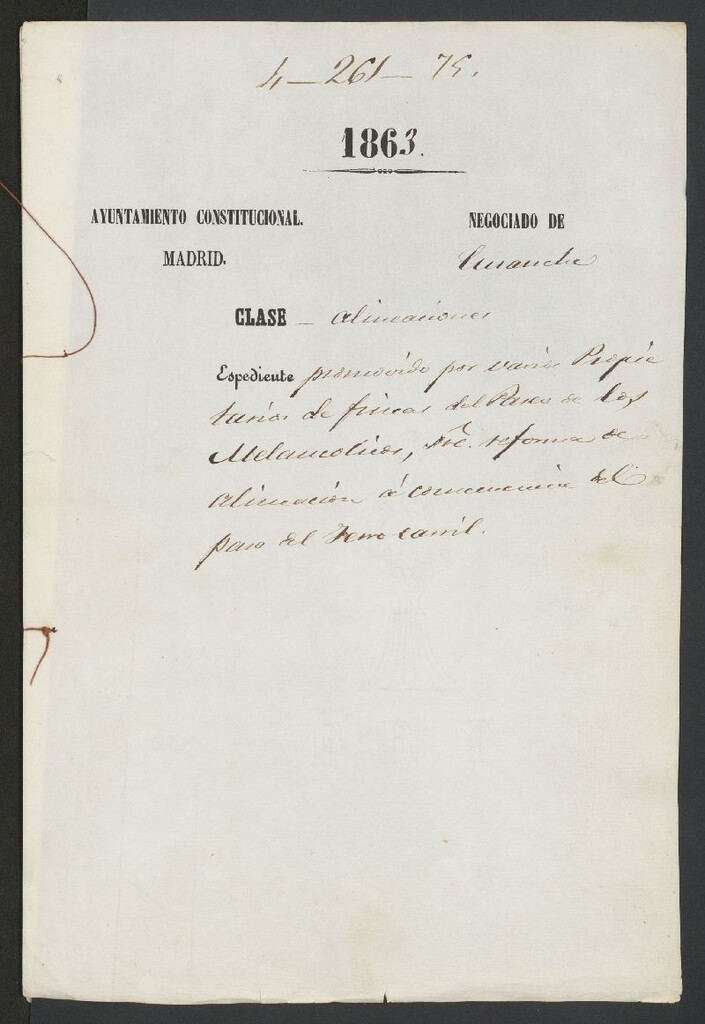 4 — 261 — 75.
1863.
AYUNTAMIENTO CONSTITUCIONAL.
MADRID.
NEGOCIADO DE
Ensanche
CLASE — Alineaciones
Espediente promovido por varios Propie
tarios de fincas del Paseo de los
Melancolicos, sre. reforma de
alineación á consecuencia del
paso del Ferro carril.